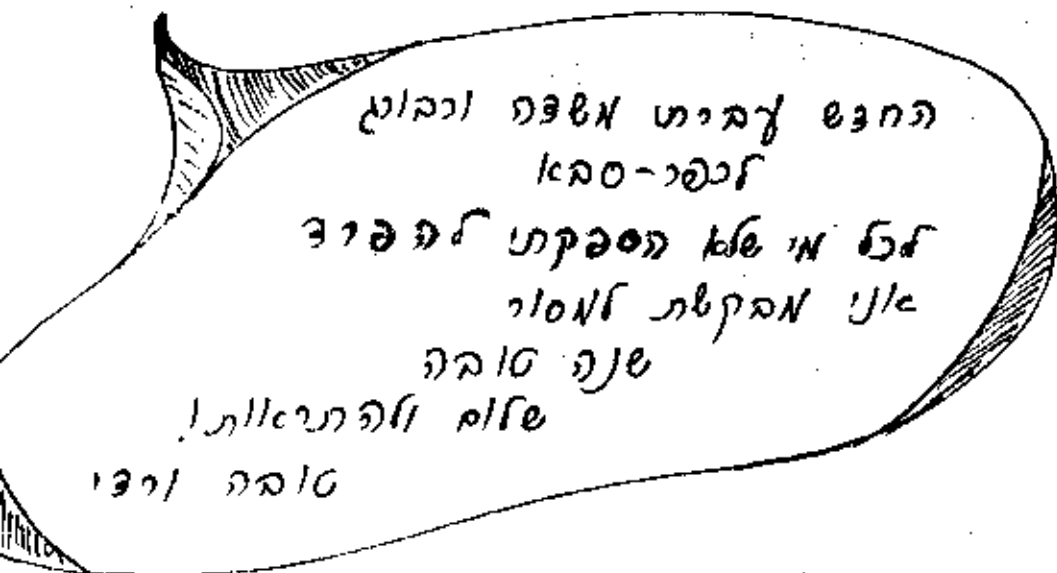 החדש עברתי משדה ורבורג
לכפר-סבא
לכל מי שלא הספקתי להפרד
אני מבקשת למסור
שנה טובה
שלום ולהתראות!
טובה ורדי